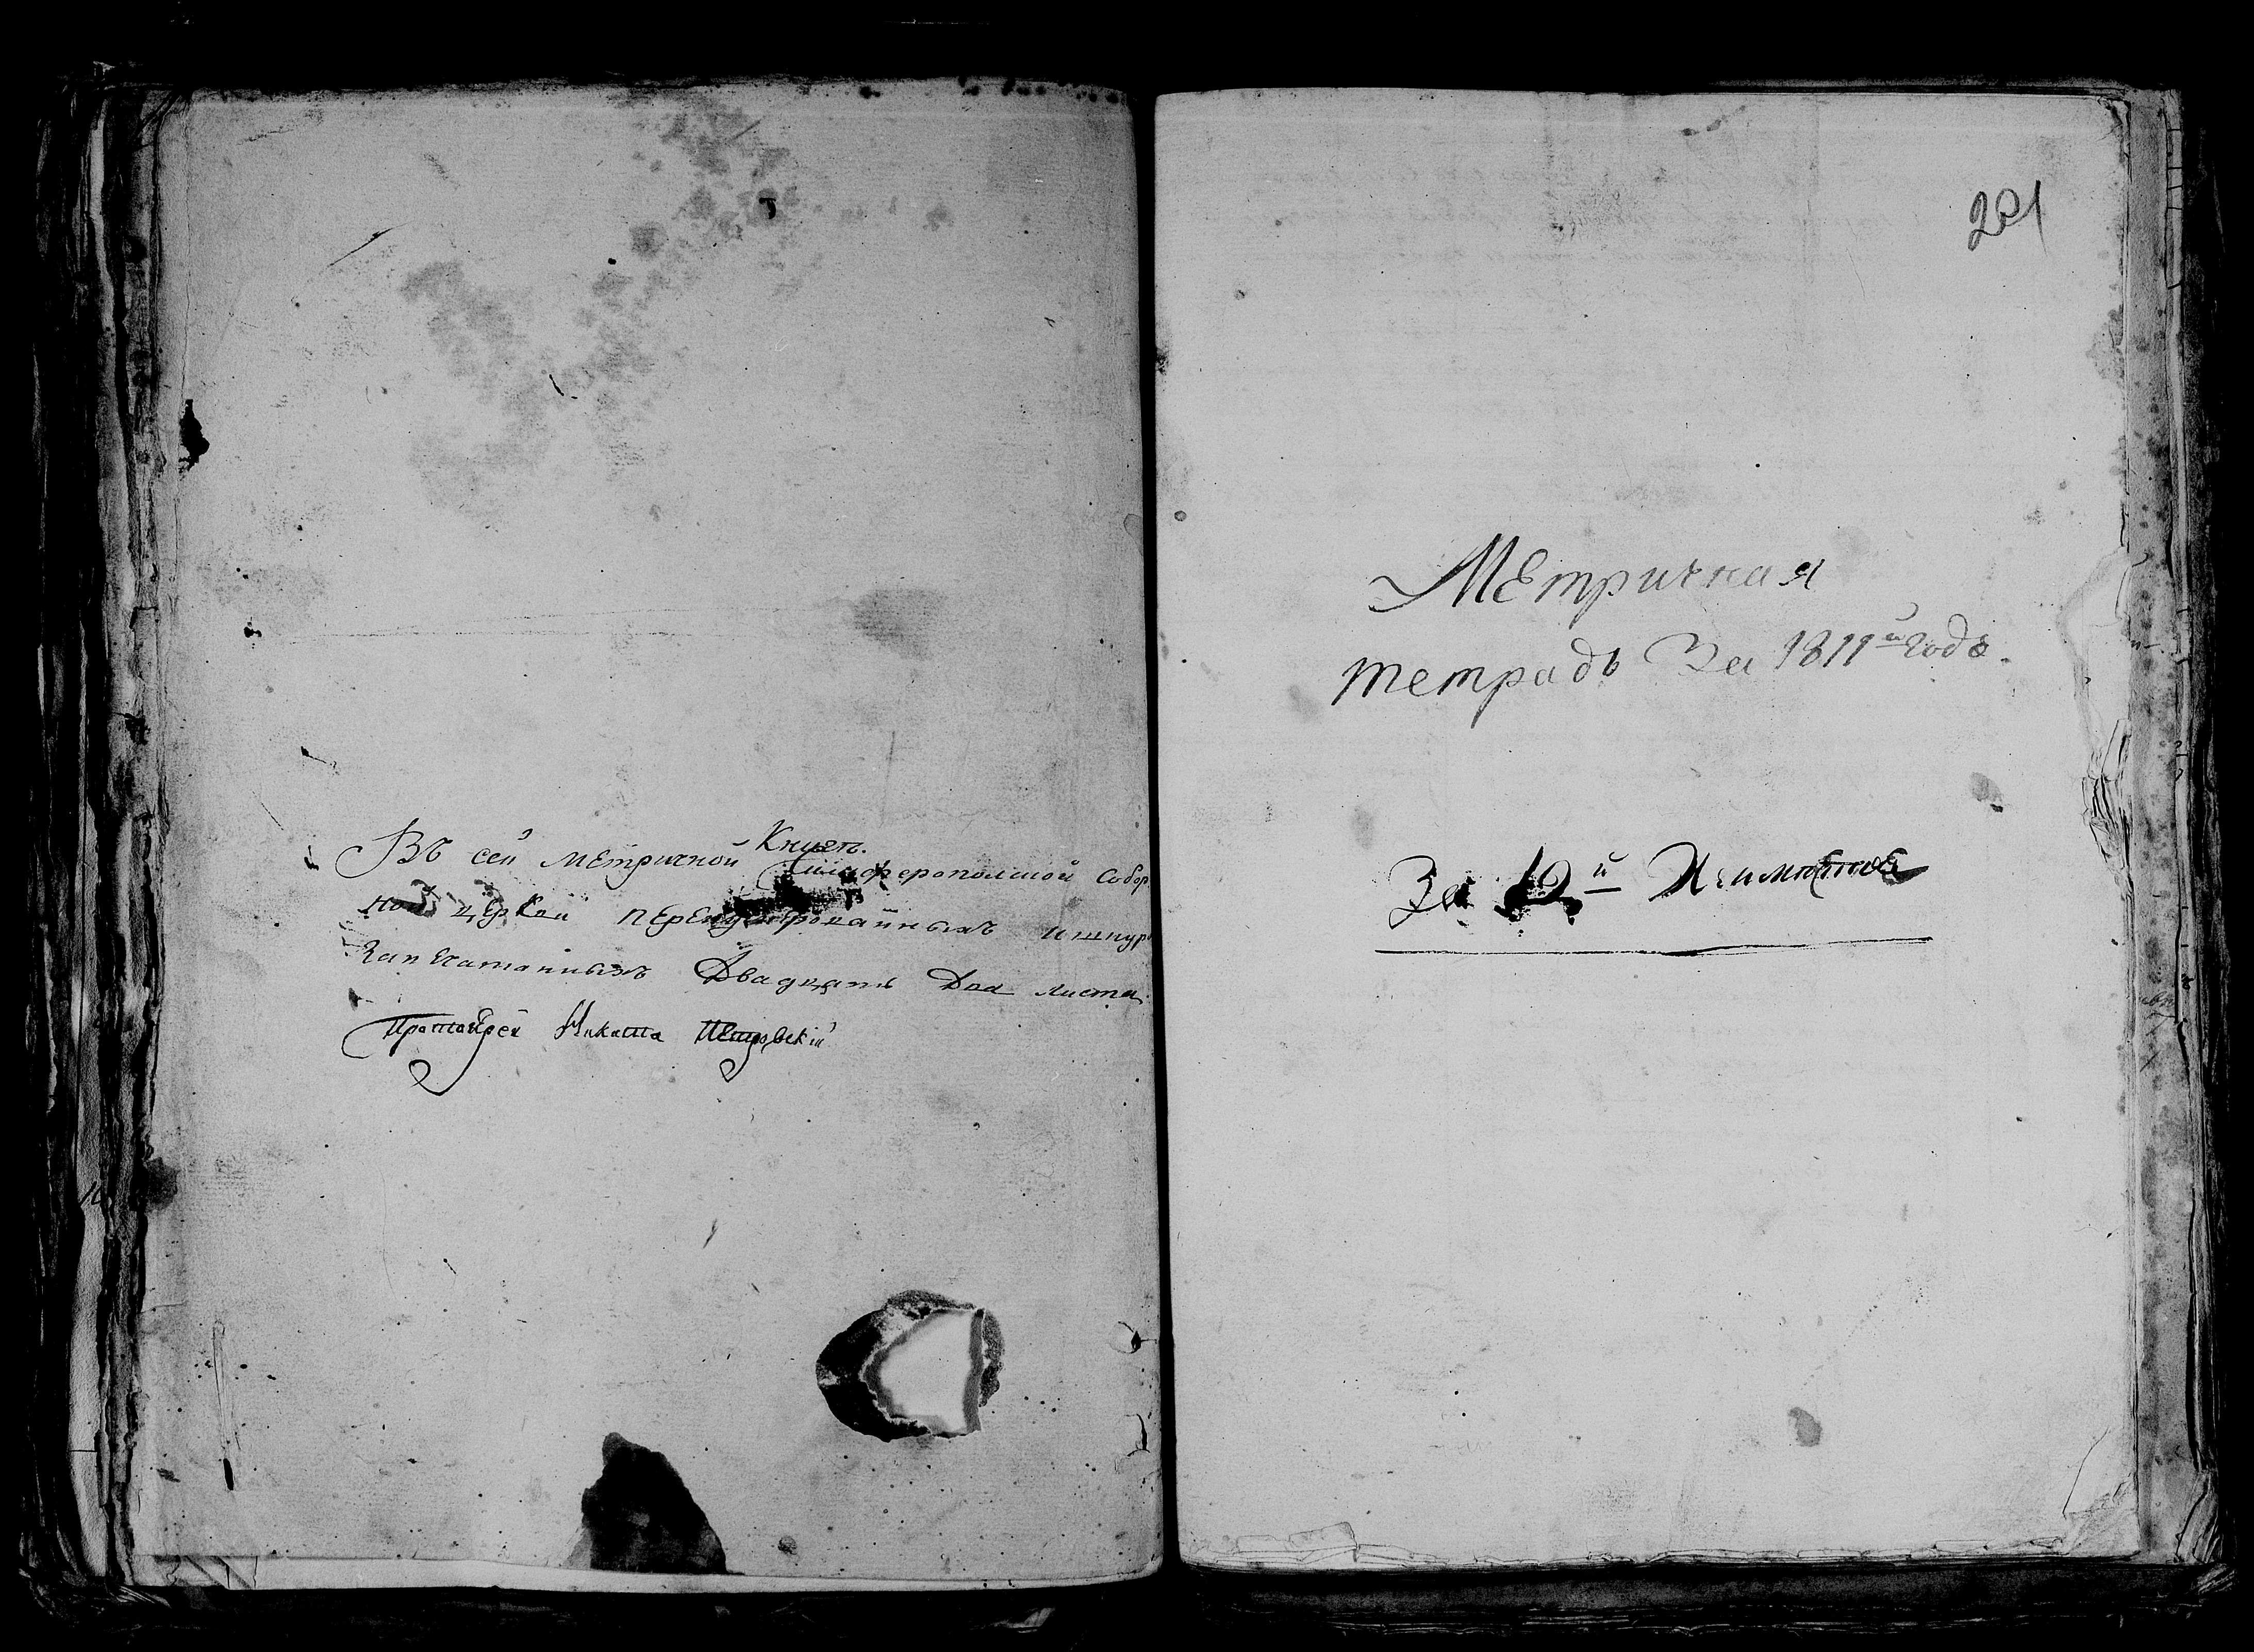 Въ сей Метричной Книге.
Симферополской Собор
ной церкви перенумерованныхъ ишнур
Запечатанныхъ Двадцать Два листа.
Протоиерей Никита Петровскій
201
Метричная
тетрадь За 1811й годъ.
За 12й